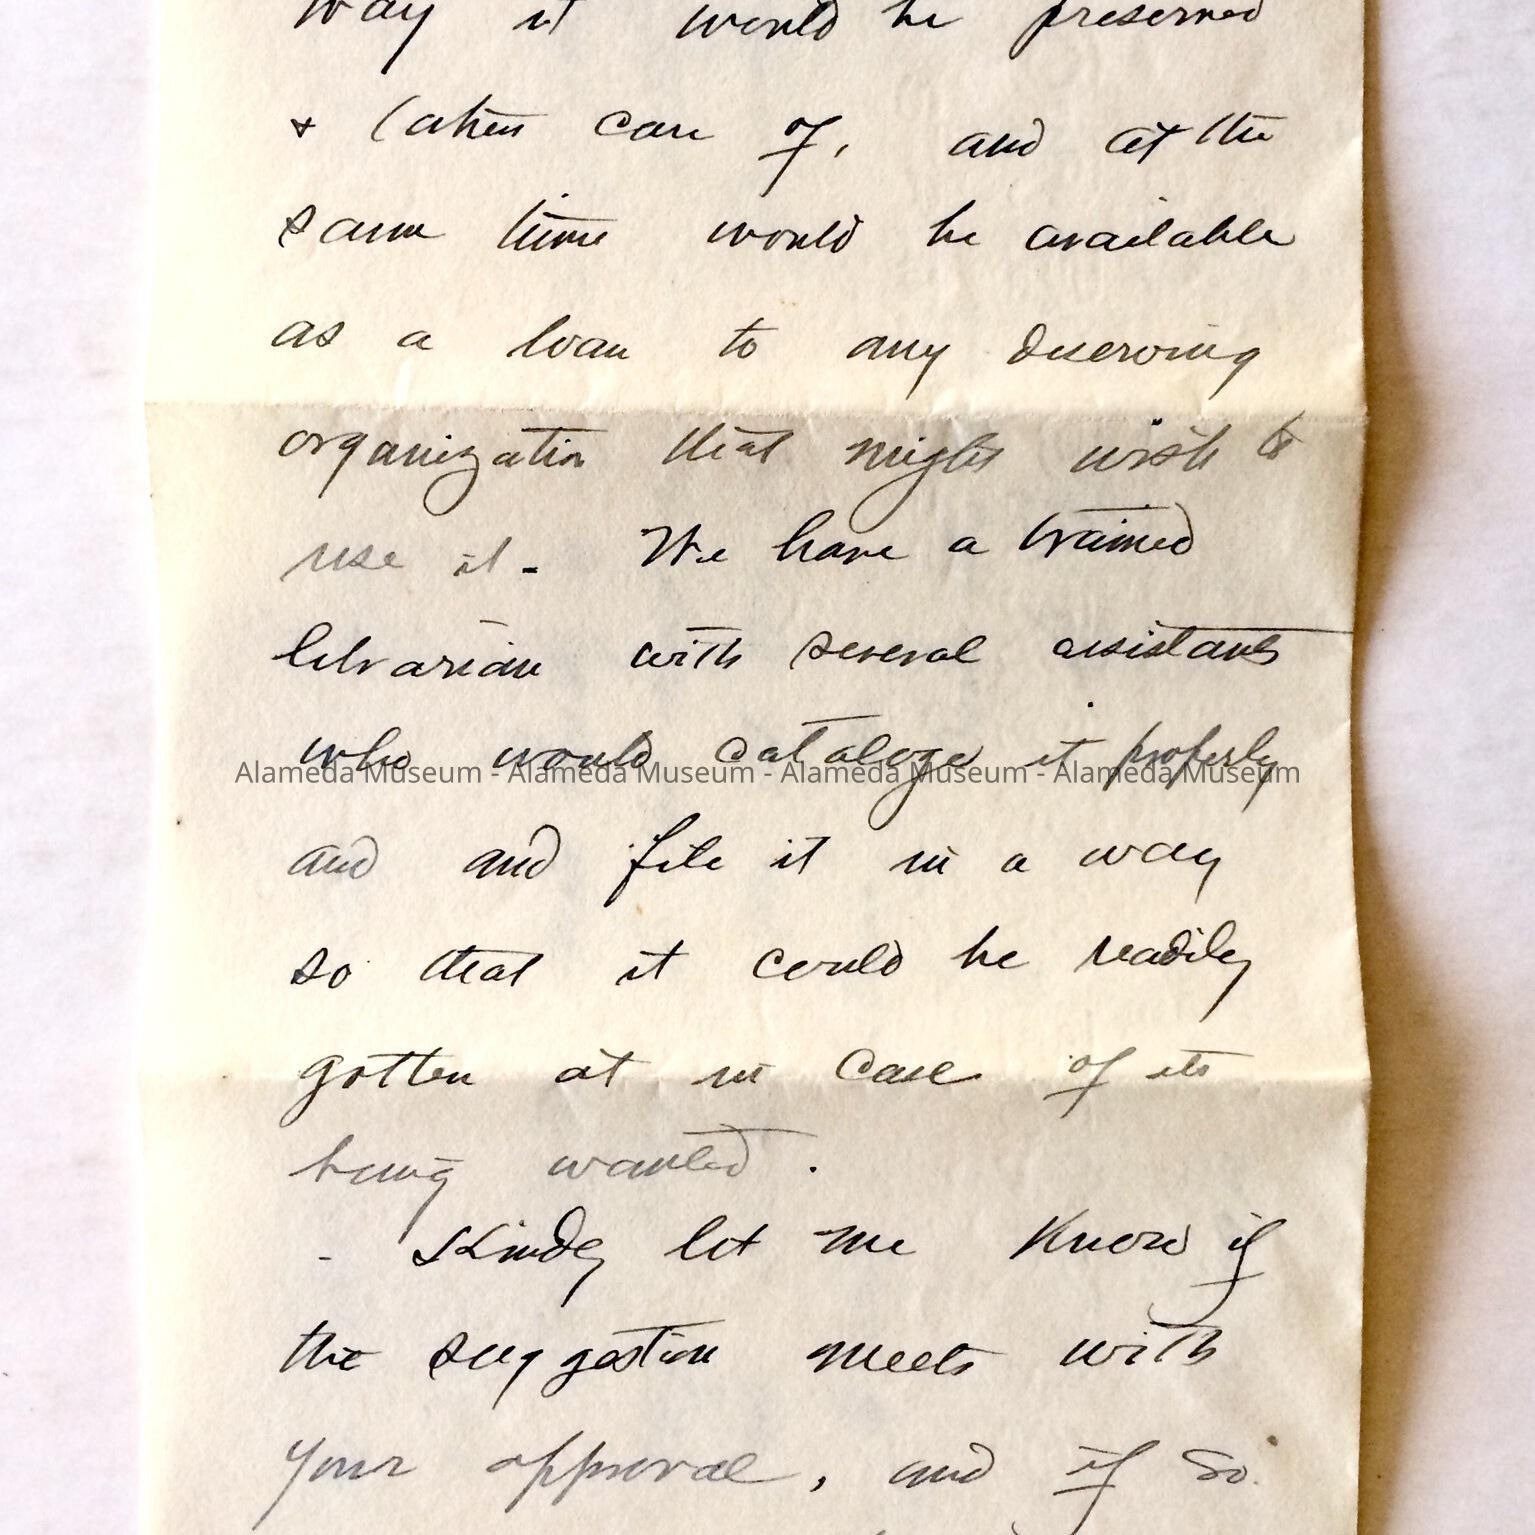 way it would be preserved
& taken care of, and at the
same time would be available
as a loan to any deserving
organization that might wish to
use it. We have a trained
librarian with several assistants
who would cataloge it properly
Alameda Museum - Alameda Museum - Alameda Museum - Alameda Museum
and and file it in a way
so that it could be readily
gotten at in case of its
being wanted.
- Kindly let me know if
the suggestion meets with
your approval, and if so